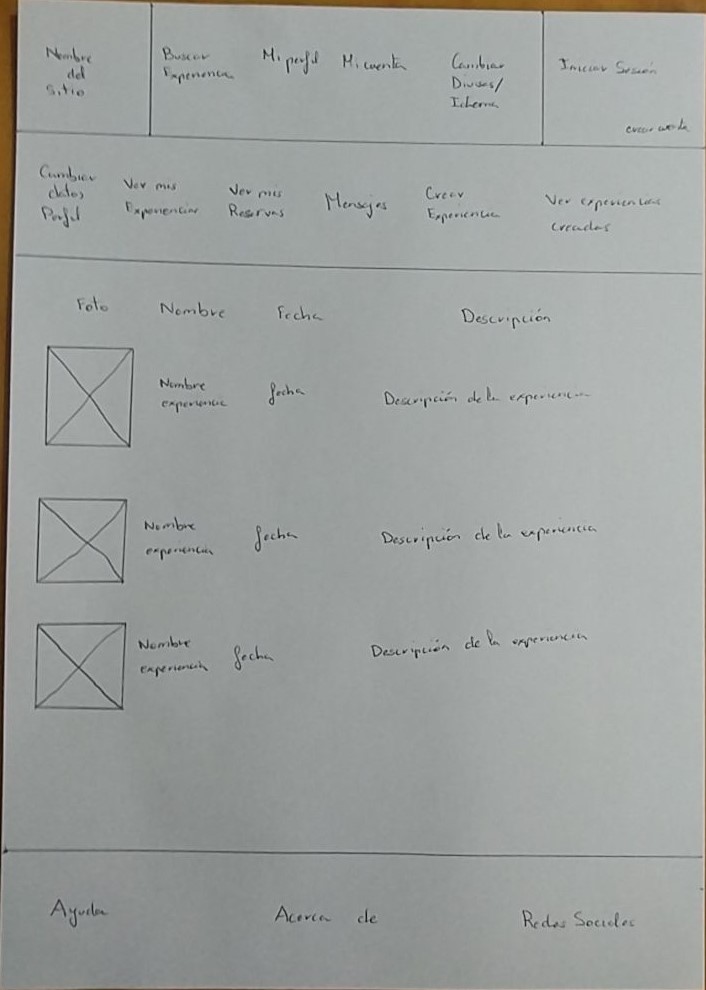 Nombre
del
Sitio
Buscar
Experiencia
Mi perfil
Mi cuenta
Cambiar
Divisas/
Idioma
Iniciar Sesión
crear cuenta
Cambiar
datos
Perfil
Ver mis
Experiencias
Ver mis
Reservas
Mensajes
Crear
Experiencia
Ver experiencias
creadas
Foto
Nombre
Fecha
Descripción
Nombre
experiencia
fecha
Descripción de la experiencia
Nombre
experiencia
fecha
Descripción de la experiencia
Nombre
experiencia
fecha
Descripción de la experiencia
Ayuda
Acerca de
Redes Sociales